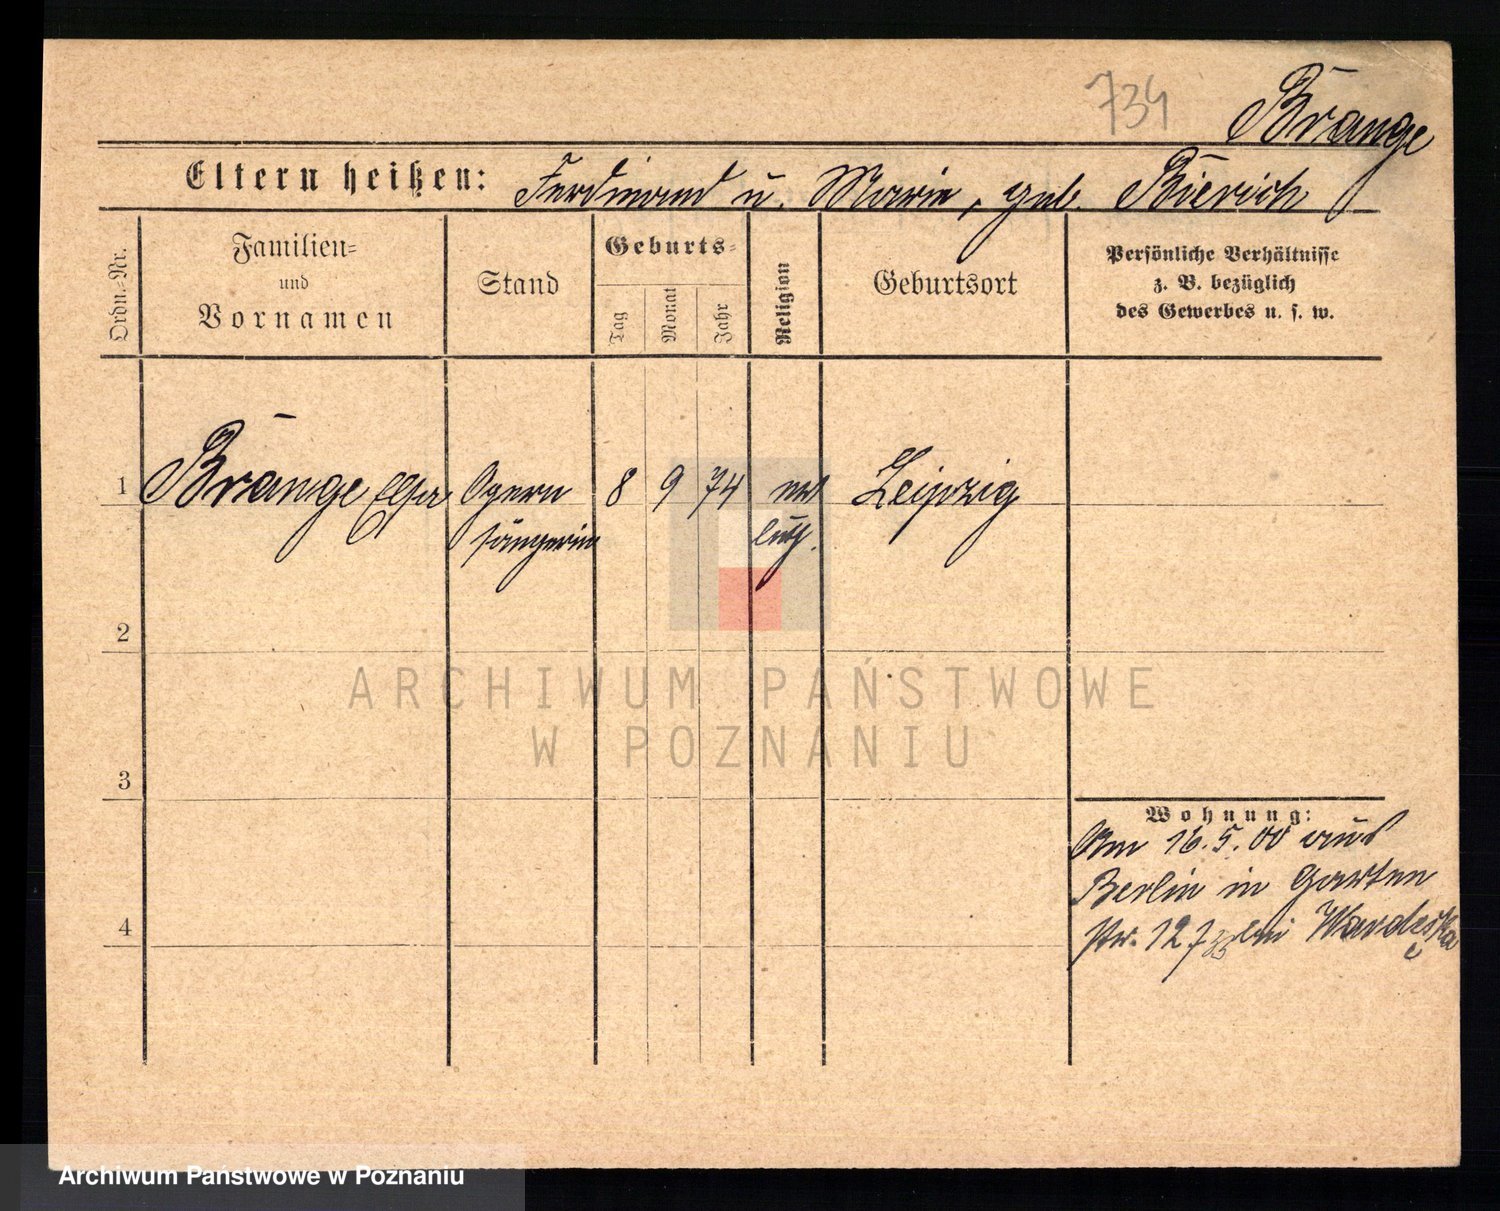 734
Brange
Eltern heißen: Ferdinand u. Marie, geb. Bierich
Ordn.-Nr.
Familien- und Vornamen
Stand
Geburts-
Tag
Monat
Jahr
Religion
Geburtsort
Persönliche Verhältnisse
z. B. bezüglich
des Gewerbes u. s. w.
1 Brange Elsa Opern 8 9 74 ev Leipzig
sängerin luth.
2
ARCHIWUM PAŃSTWOWE
W POZNANIU
3
Wohnung:
Am 16.5.00 aus
Berlin in Garten
4
str. 12 bei
Archiwum Państwowe w Poznaniu